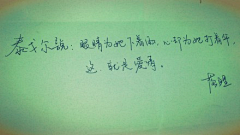 泰戈尔說：眼睛为她下着雨，心却为她打着伞，
这就是爱情。